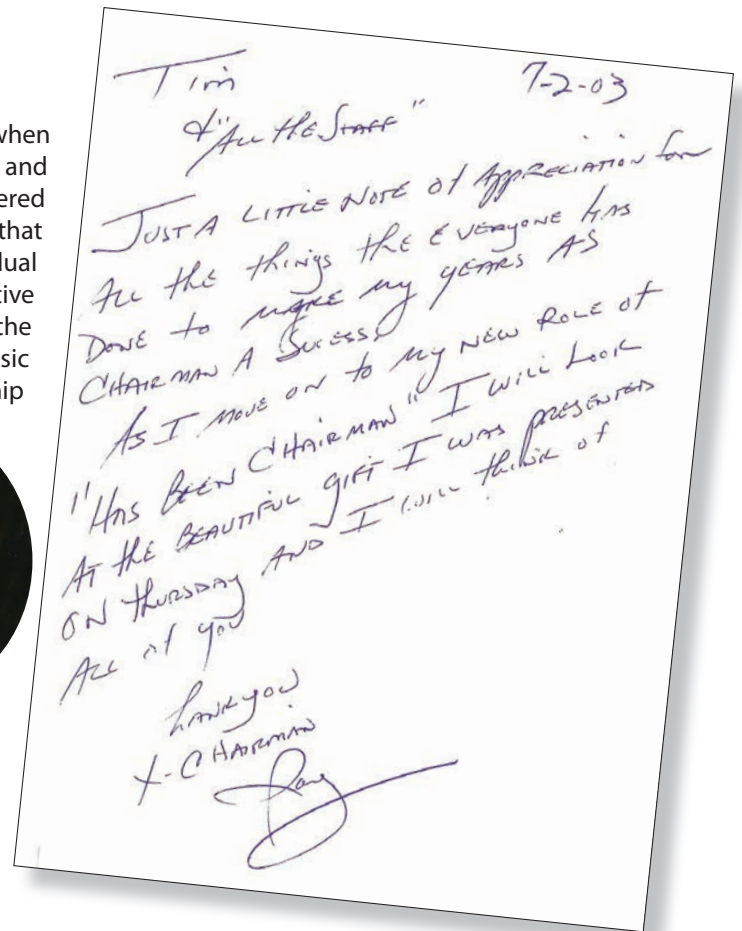 when
and
ered
that
dual
tive
the
sic
ip
Tim 7-2-03
& "All the Staff"
Just a little note of appreciation for
all the things the everyone has
done to make my years as
Chairman a sucess
As I move on to my new role of
"Has Been Chairman" I will look
at the beautiful gift I was presented
on Thursday and I will think of
all of you
hank you
X-Chairman